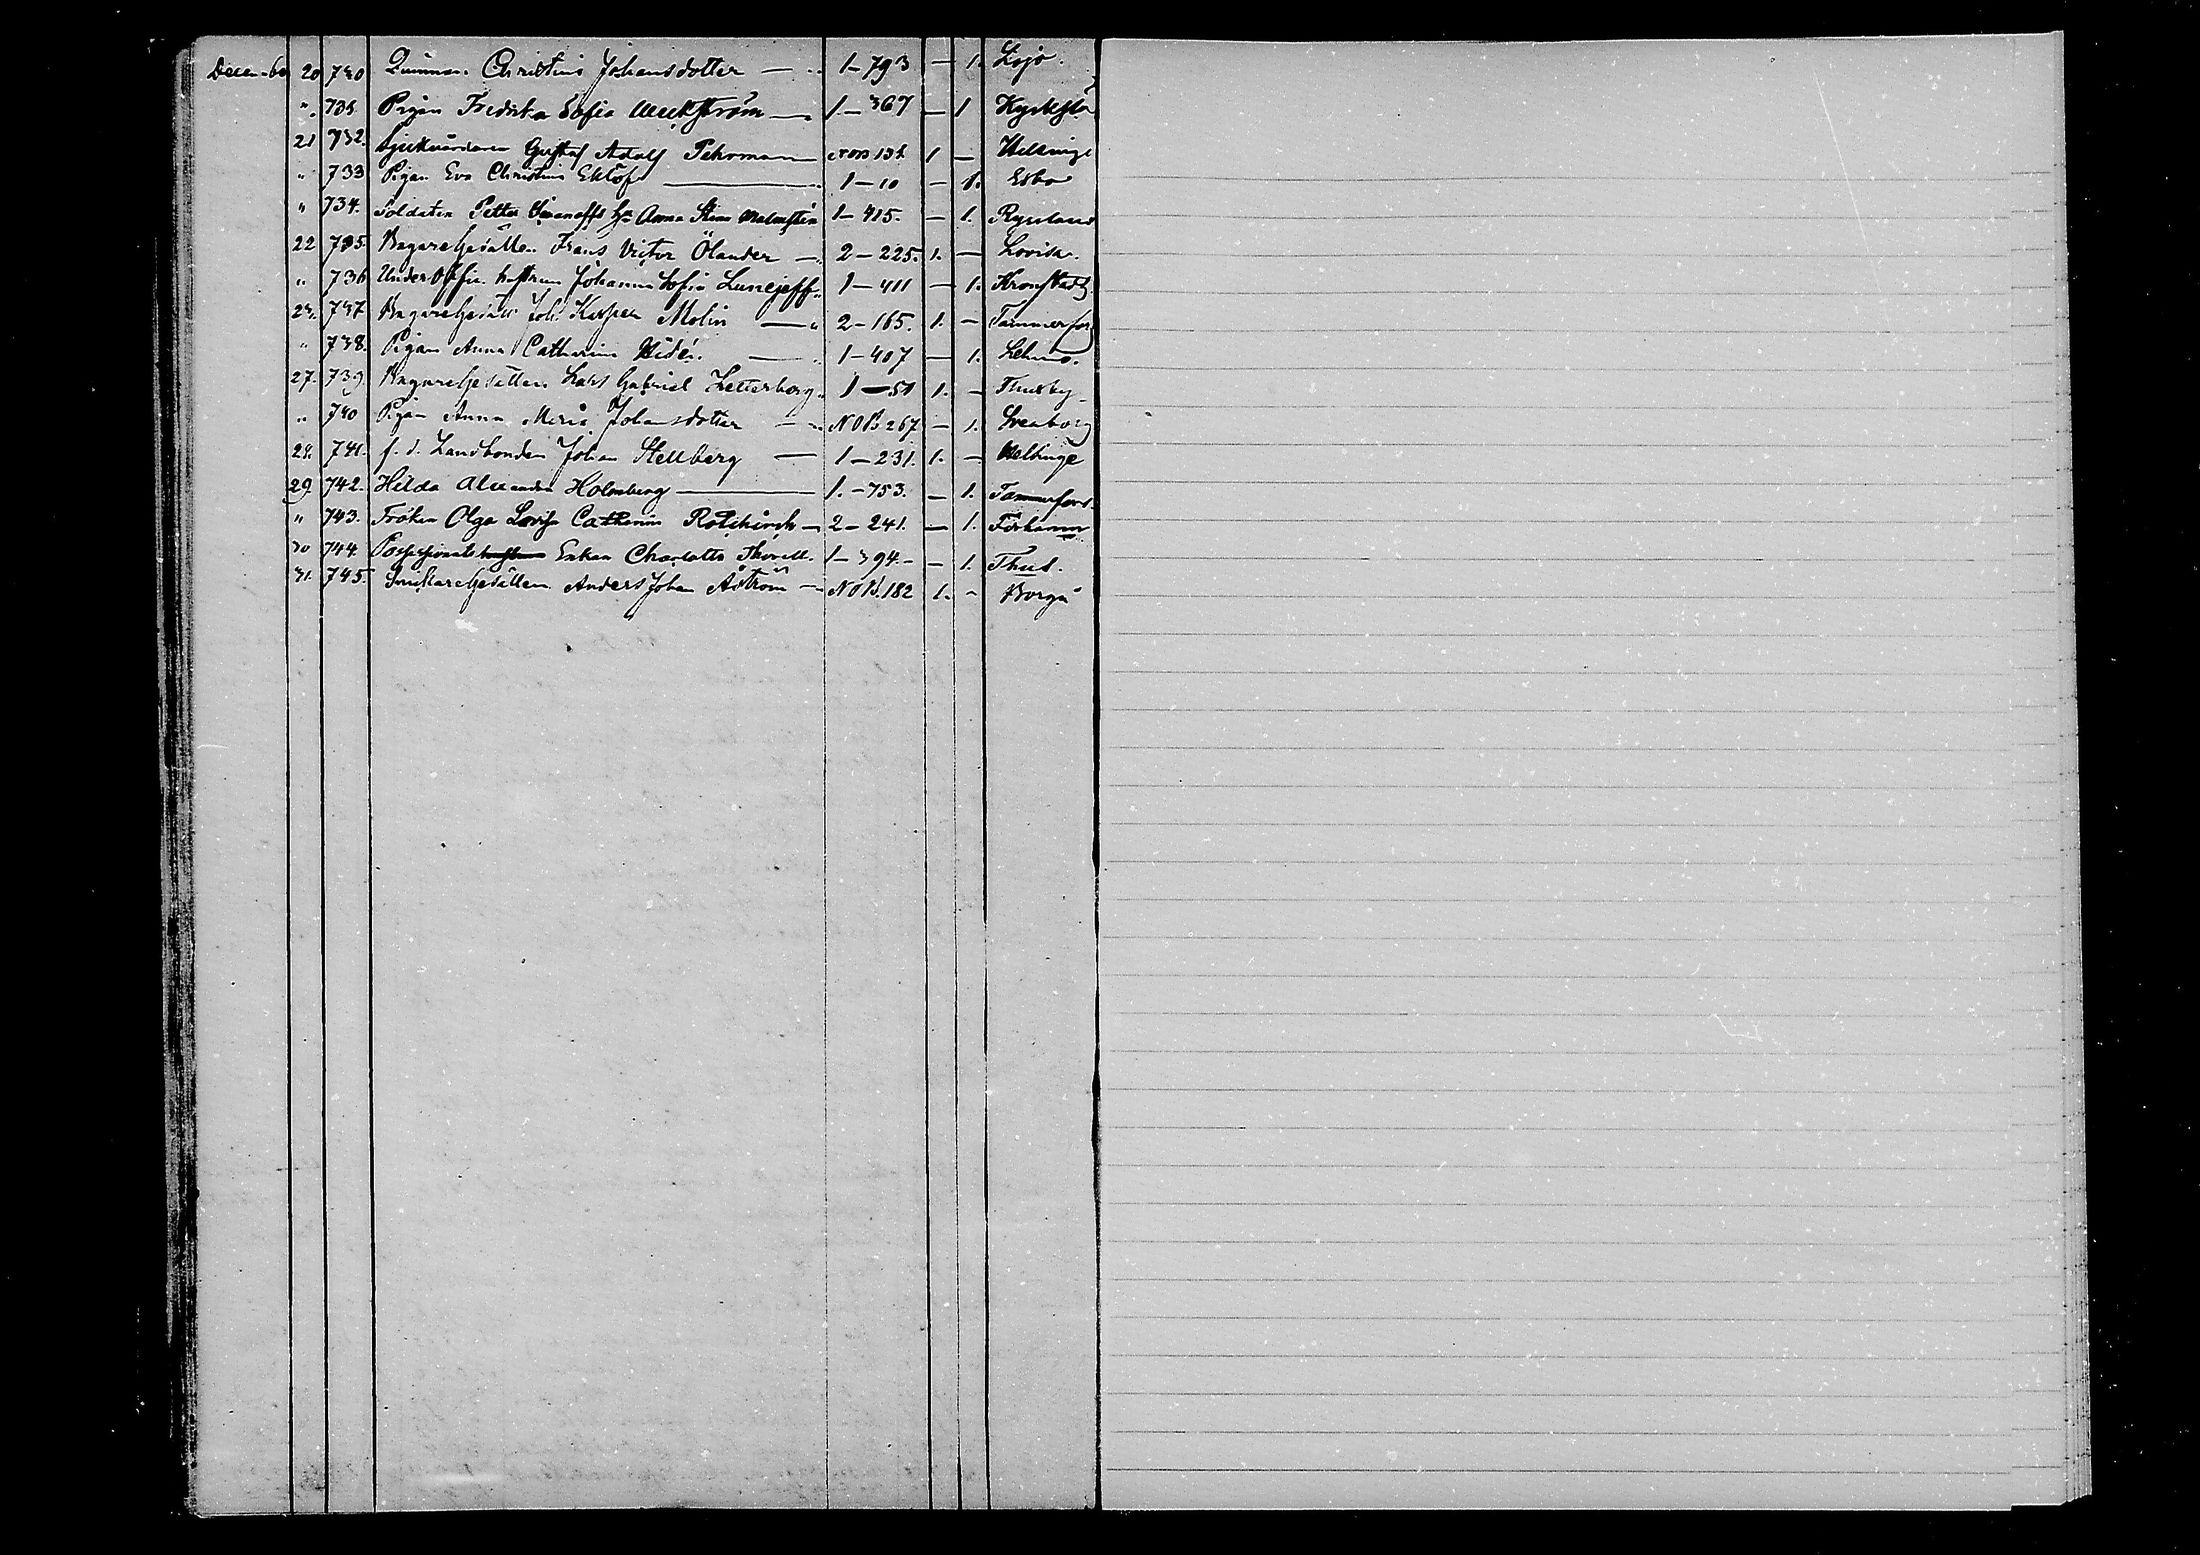 Decemb. 20 730 Qvinnan Christina Johansdotter — 1–793 — 1. Lojo.
" 731 Pigan Fredrika Sofia — 1–367 — 1
21 732. Sjukvårdaren Gustaf Adolf Pehrman NOB 131 1 — Helsinge
" 733 Pigan Eva Christina Eklöf 1–10 — 1. Esbo
" 734. Soldaten Petter Iwanoffs hu Anna Stina Malmsten 1–415. — 1. Ryssland
22 735. Bagare Gesällen Frans Victor Ölander — 2–225. 1. — Lovisa.
" 736 Under Offic. hustrun Johanna Sofia 1–411 — 1. Kronstadt
23. 737. Bagare Gesäll Joh. Kasper Molin — 2–165. 1. — Tammerfors
" 738. Pigan Anna Catharina Widén. — 1–407 — 1.
27. 739. Bagare Gesällen Lars Gabriel Zetterborg 1–51 1. — Thusby
" 740 Pigan Anna Maria Johansdotter — NOB 267 — 1. Sveaborg
741. f. d. Landbonden Johan Stellberg — 1–231. 1. — Helsinge
29 742. Hilda Alexandra Holmberg — 1.–753. — 1. Tammerfors.
" 743. Fröken Olga Lovisa Catharina Rotkirch — 2–241. — 1.
30 744 Enkan Charlotta 1–394.– — 1. Thus.
31. 745. Snickare Gesällen Anders Johan Åström — NOB. 182 1. – Borgå